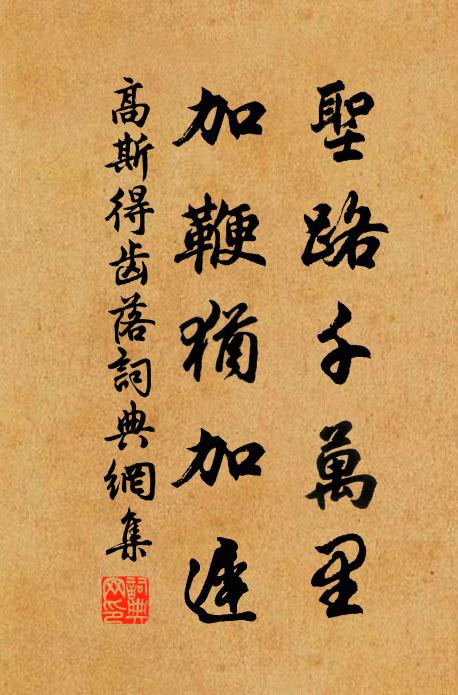 聖路千萬里
加鞭猶加遲
高斯得齒落詞典網集
詞典網印